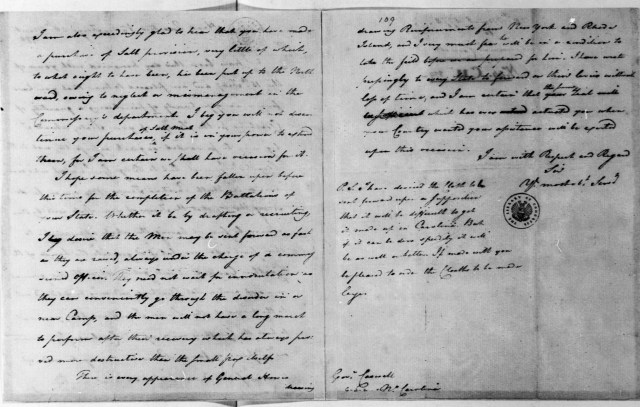 I am also exceedingly glad to hear that you have made
a purchase of Salt provision, very little of which,
to what ought to have been, has been put up to the North
ward, owing to neglect or mismanagement in the
Commissary's department. I beg you will not discon
of Salt Meat
tinue your purchases, if it is in your power to extend
them, for I am certain we shall have occasion for it.
I hope some means have been fallen upon before
this time for the completion of the Battalions of
your State. Whether it be by drafting or recruiting,
I beg desire that the Men may be sent forward as fast
as they are raised, always under the charge of a commis
sioned Officer. They need not wait for innoculation as
they can conveniently go through the disorder in or
near Camp, and the men will not have a long march
to perform after their recovery which has always pro
ved more destructive than the small pox itself.
There is every appearance of General Howe
drawing
109
drawing Reinforcements from New York and Rhode
Island, and I very much fear will be in a condition to
take the field before we are prepared for him. I have wrote
pressingly to every State to forward on their levies without
loss of time, and I am certain that
which has ever extended when
your Country wanted your assistance will be exerted
upon this occasion.
I am with Respect and Regard
Sir
Yr. most obt. Servt.
P.S. I have desired the Cloth to be
sent forward upon a supposition
that it will be difficult to get
it made up in Carolina. But
if it can be done speedily it will
be as well or better. If made with you
be pleased to order the Cloaths to be made
large.
Govr. Caswell
No. Carolina